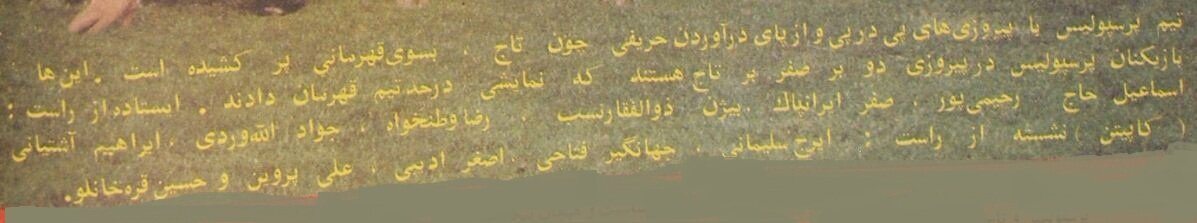 تیم پرسپولیس با پیروزی‌های پی درپی و از پای درآوردن حریفی چون تاج ، بسوی قهرمانی پر کشیده است . این‌ها
بازیکنان پرسپولیس در پیروزی دو بر صفر بر تاج هستند که نمایشی درحد تیم قهرمان دادند . ایستاده از راست :
اسماعیل حاج رحیمی‌پور ، صفر ایرانپاک ، بیژن ذوالفقارنسب ، رضا وطنخواه ، جواد الله‌وردی ، ابراهیم آشتیانی
( کاپیتن ) نشسته از راست : ایرج سلیمانی ، جهانگیر فتاحی ، اصغر ادیبی ، علی پروین و حسین قره‌خانلو .